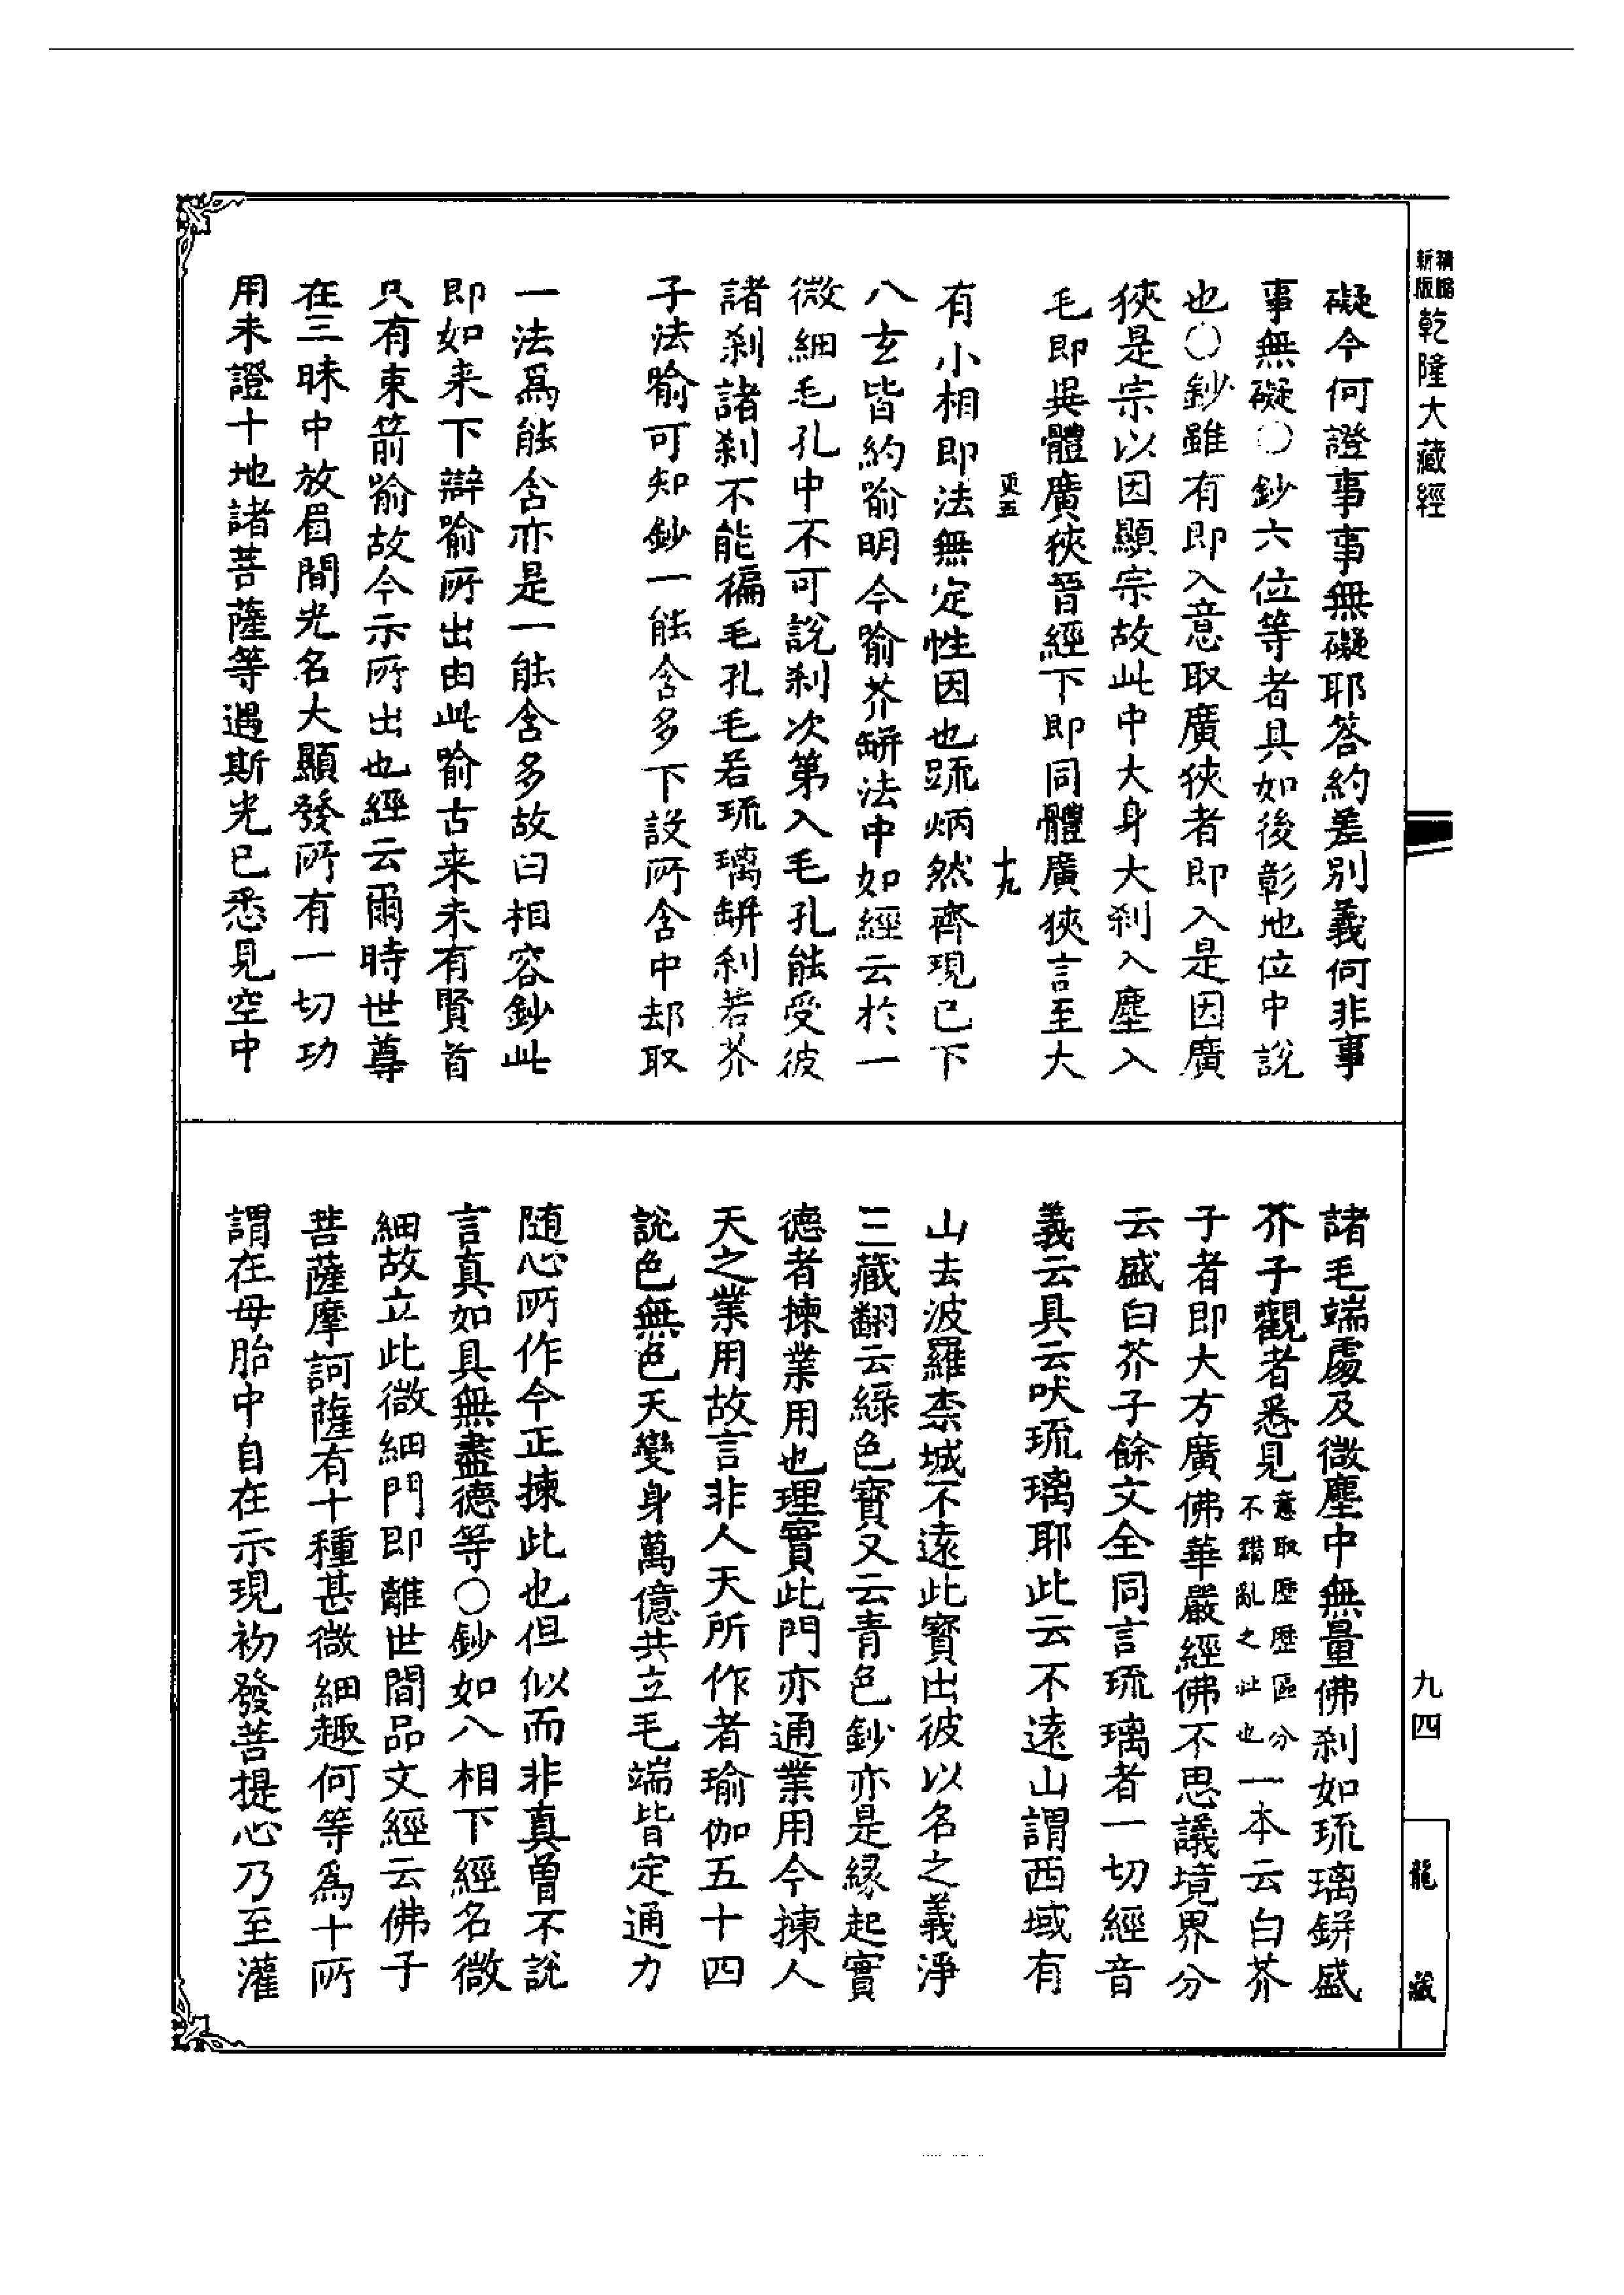 新版
精縮
乾隆大藏經
礙今何證事事無礙耶答約差別義何非事
事無礙○鈔六位等者具如後彰地位中說
也○鈔雖有即入意取廣狹者即入是因廣
狹是宗以因顯宗故此中大身大剎入塵入
毛即異體廣狹晉經下即同體廣狹言至大
更五
十九
有小相即法無定性因也䟽炳然齊現已下
八玄皆約喻明今喻芥缾法中如經云於一
微細毛孔中不可說剎次第入毛孔能受彼
諸剎諸剎不能徧毛孔毛若琉璃缾剎若芥
子法喻可知鈔一能含多下設所含中却取
一法為能含亦是一能含多故曰相容鈔此
即如来下辯喻所出由此喻古来未有賢首
只有束箭喻故今示所出也經云爾時世尊
在三昧中放眉間光名大顯發所有一切功
用未證十地諸菩薩等遇斯光已悉見空中
諸毛端處及微塵中無量佛剎如琉璃缾盛
芥子觀者悉見意取歷歷區分不錯亂之䇥也一本云白芥
子者即大方廣佛華嚴經佛不思議境界分
云盛白芥子餘文全同言琉璃者一切經音
義云具云吠琉璃耶此云不遠山謂西域有
山去波羅柰城不遠此寶出彼以名之義淨
三藏翻云綠色寶又云青色鈔亦是緣起實
德者揀業用也理實此門亦通業用今揀人
天之業用故言非人天所作者瑜伽五十四
說色無色天變身萬億共立毛端皆定通力
随心所作今正揀此也但似而非真曾不說
言真如具無盡德等○鈔如八相下經名微
細故立此微細門即離世間品文經云佛子
菩薩摩訶薩有十種甚微細趣何等為十所
謂在母胎中自在示現初發菩提心乃至灌
九四
龍藏